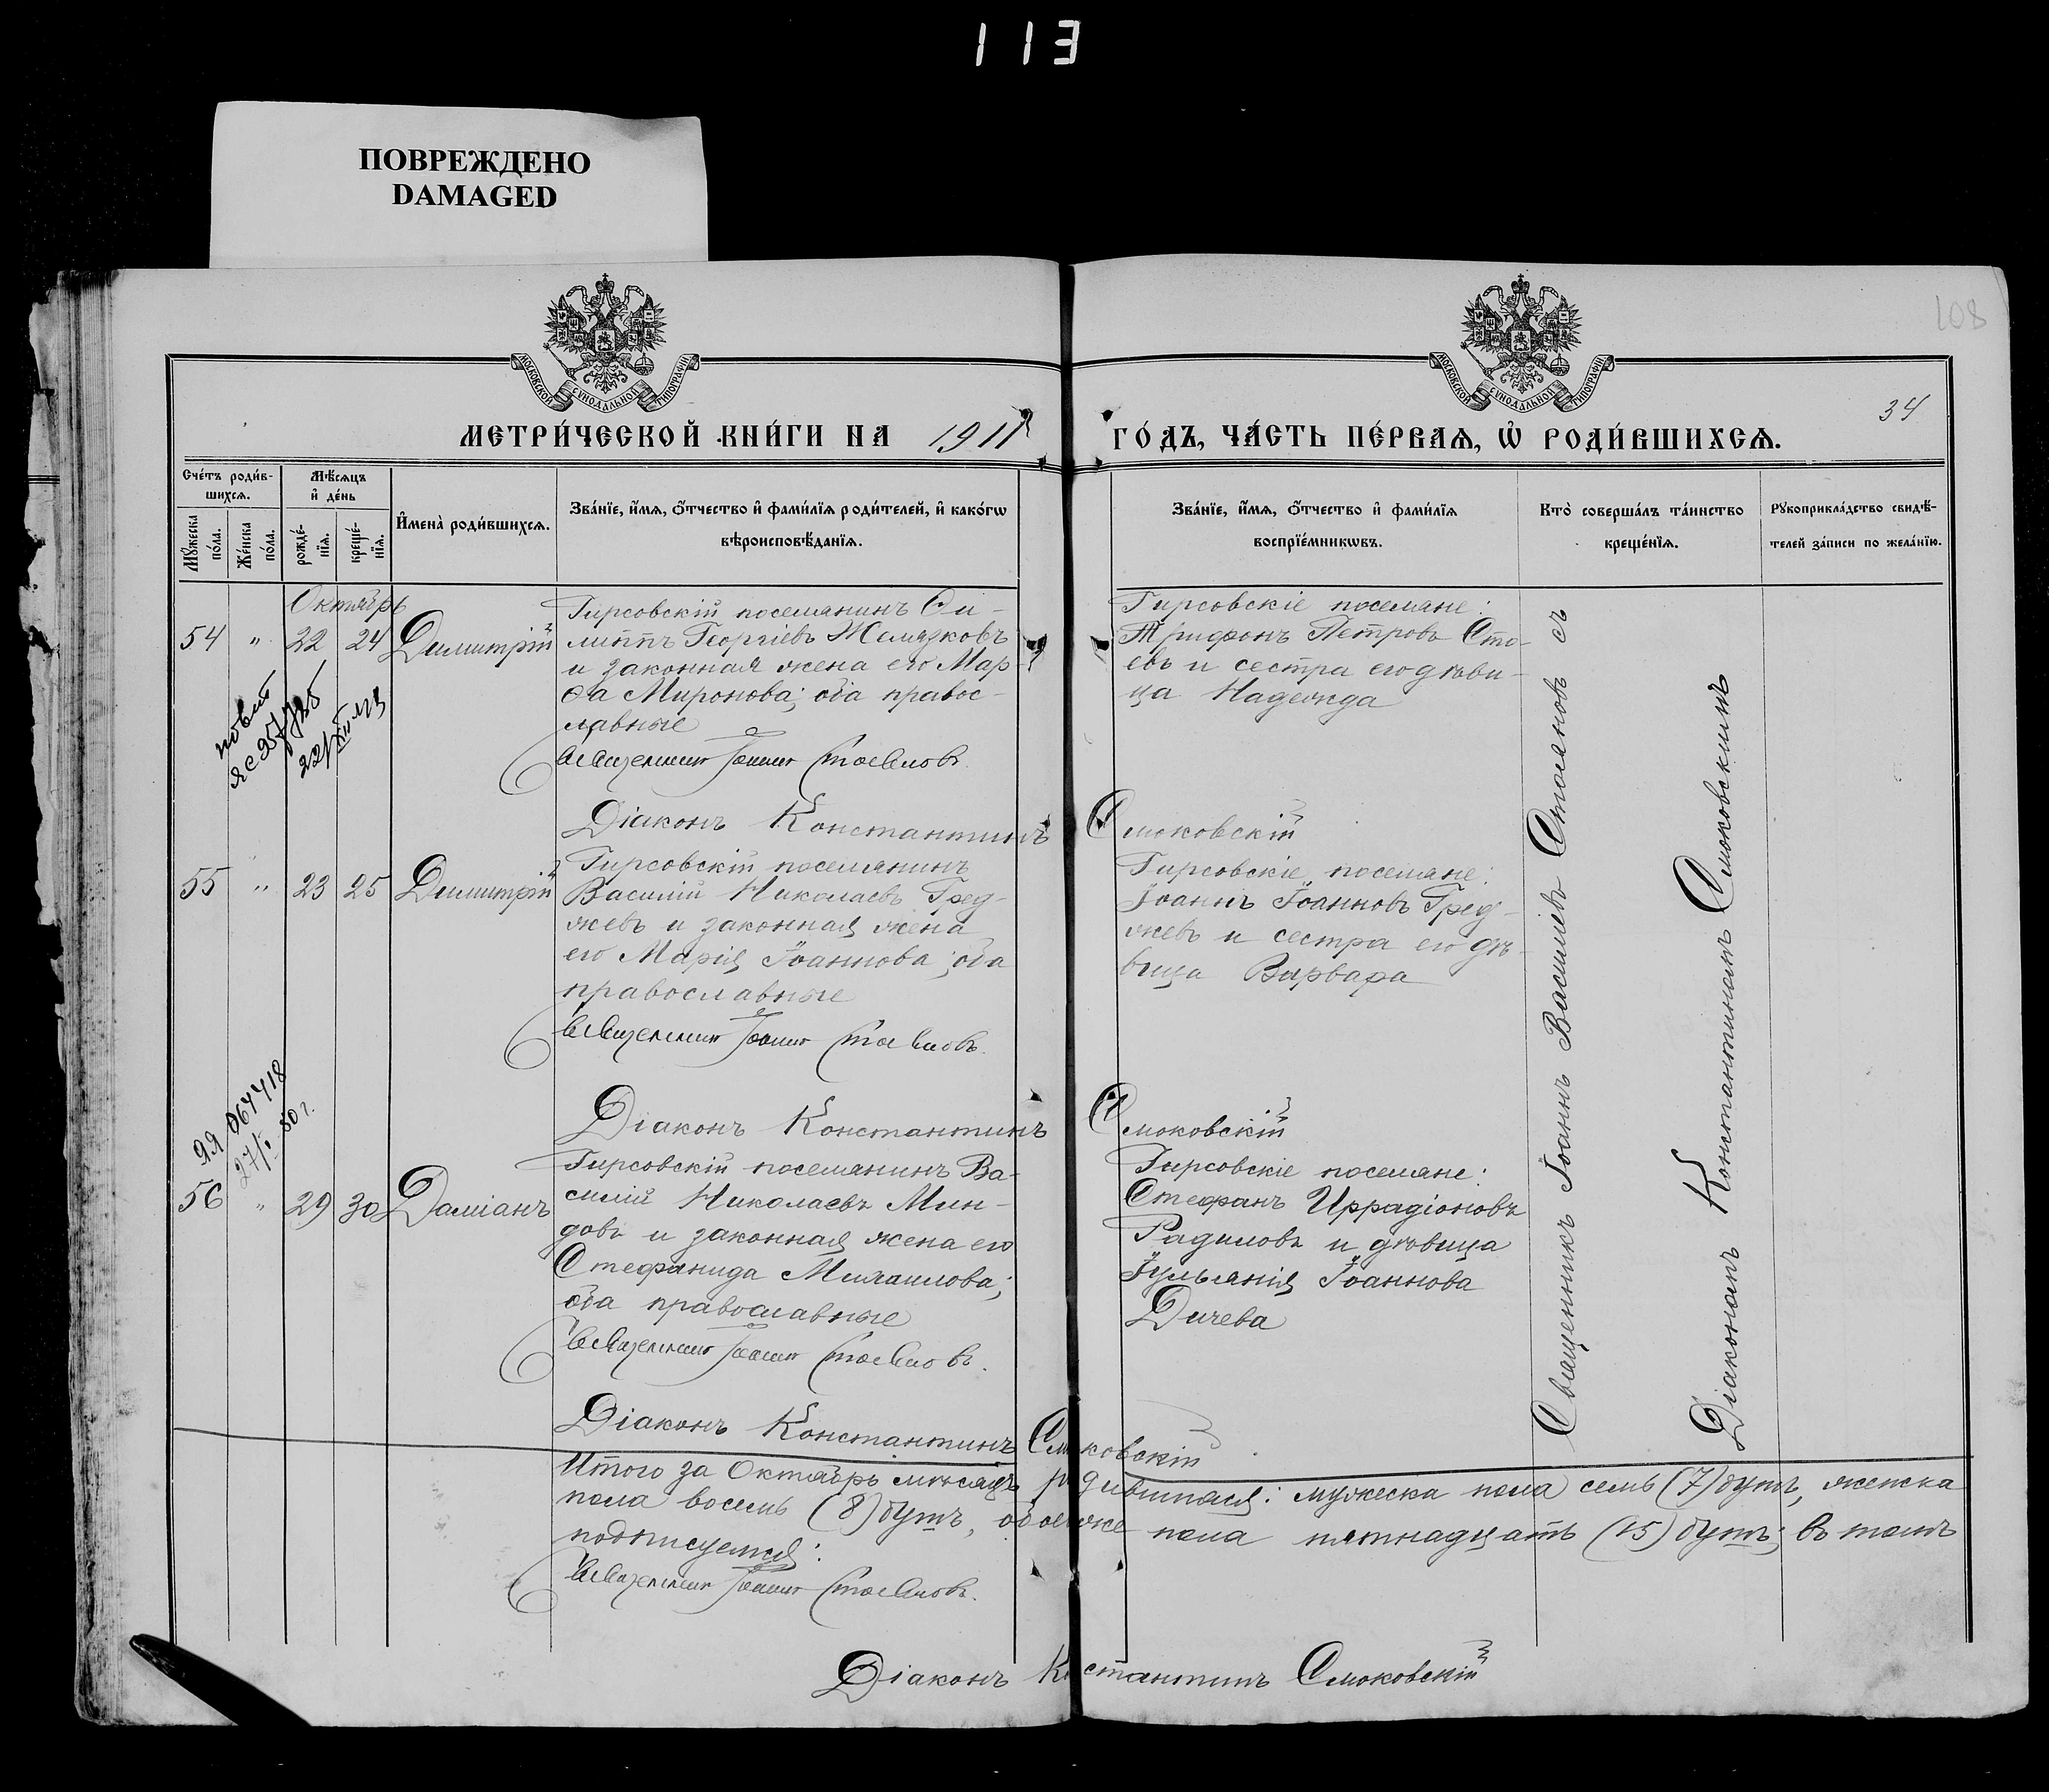 113
ПОВРЕЖДЕНО
DAMAGED
МОСКОВСКОЙ СѴНОДАЛЬНОЙ ТИПОГРАФІИ
МОСКОВСКОЙ СѴНОДАЛЬНОЙ ТИПОГРАФІИ
108
34
МЕТРИ́ЧЕСКОЙ КНИ́ГИ НА 1911
ГО́ДЪ, ЧА́СТЬ ПЕ́РВАѦ, Ѡ҆ РОДИ́ВШИХСѦ.
Сче́тъ роди́вшихсѧ.
Мѹ́жеска по́ла.
Же́нска по́ла.
Мѣ́сѧцъ и҆ де́нь
рожде́нїѧ.
креще́нїѧ.
И҆мена̀ роди́вшихсѧ.
Зва́нїе, и҆́мѧ, ѻ҆́тчество и҆ фами́лїѧ роди́телей, и҆ како́гѡ
вѣроисповѣ́данїѧ.
Зва́нїе, и҆́мѧ, ѻ҆́тчество и҆ фами́лїѧ
воспрїе́мникѡвъ.
Кто̀ соверша́лъ та́инство
креще́нїѧ.
Рѹкоприкла́дство свидѣ́-
телей за́писи по жела́нїю.
Октябрь
54 " 22 24 Димитрій
Гирсовскій поселянинъ Фи-
липпъ Георгіевъ Желязковъ
и законная жена его Мар-
ѳа Миронова; оба правос-
лавные
Священникъ Іоаннъ Стояновъ.
Діаконъ Константинъ Смоковскій
Гирсовскіе поселяне:
Трифонъ Петровъ Сто-
евъ и сестра его дѣви-
ца Надежда
55 " 23 25 Димитрій
Гирсовскій поселянинъ
Василій Николаевъ Гред-
жевъ и законная жена
его Марія Іоаннова; оба
православные
Священникъ Іоаннъ Стояновъ.
Діаконъ Константинъ Смоковскій
Гирсовскіе поселяне:
Іоаннъ Іоанновъ Гред-
жевъ и сестра его дѣ-
вица Варвара
27/I 80 г.
56 " 29 30 Даміанъ
Гирсовскій поселянинъ Ва-
силій Николаевъ Мин-
довъ и законная жена его
Стефанида Михаилова;
оба православные
Священникъ Іоаннъ Стояновъ.
Діаконъ Константинъ Смоковскій
Гирсовскіе поселяне:
Стефанъ Иррадіоновъ
Радиловъ и дѣвица
Іульянія Іоаннова
Дичева
Священникъ Іоаннъ Васильевъ Стояновъ съ
Діакономъ Константиномъ Смоковскимъ
Итого за Октябрь мѣсяцъ родившихся: мужеска пола семь (7) душъ, женска
пола восемь (8) душъ, обоего же пола пятнадцать (15) душъ; въ томъ
подписуемся:
Священникъ Іоаннъ Стояновъ.
Діаконъ Константинъ Смоковскій